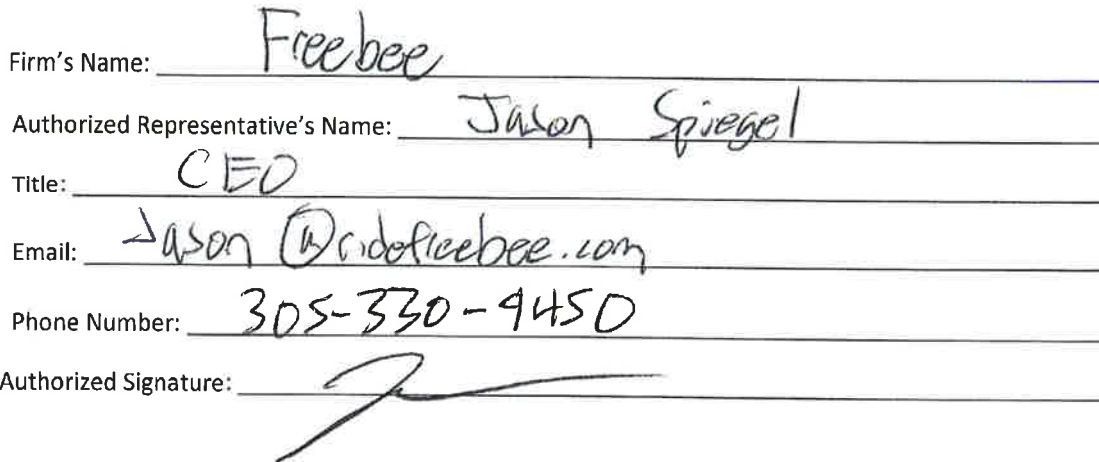 Firm's Name: Freebee
Authorized Representative's Name: Jason Spiegel
Title: CEO
Email: Jason@ridefreebee.com
Phone Number: 305-330-9450
Authorized Signature: